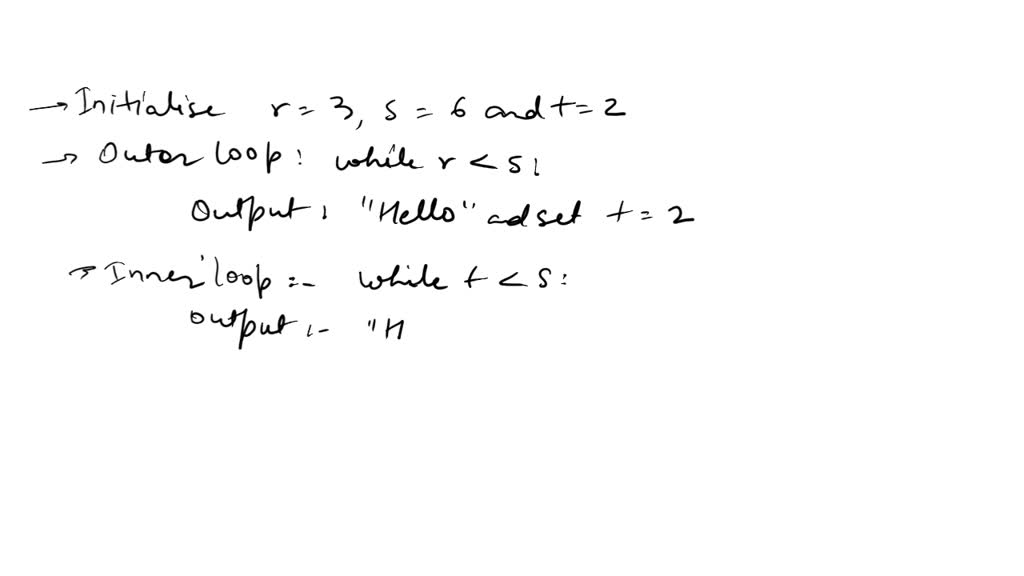 → Initialise r = 3, s = 6 and t = 2
→ Outer loop : while r < s :
Output : "Hello" ad set t = 2
→ Inner loop :- while t < s :
Output :- "H